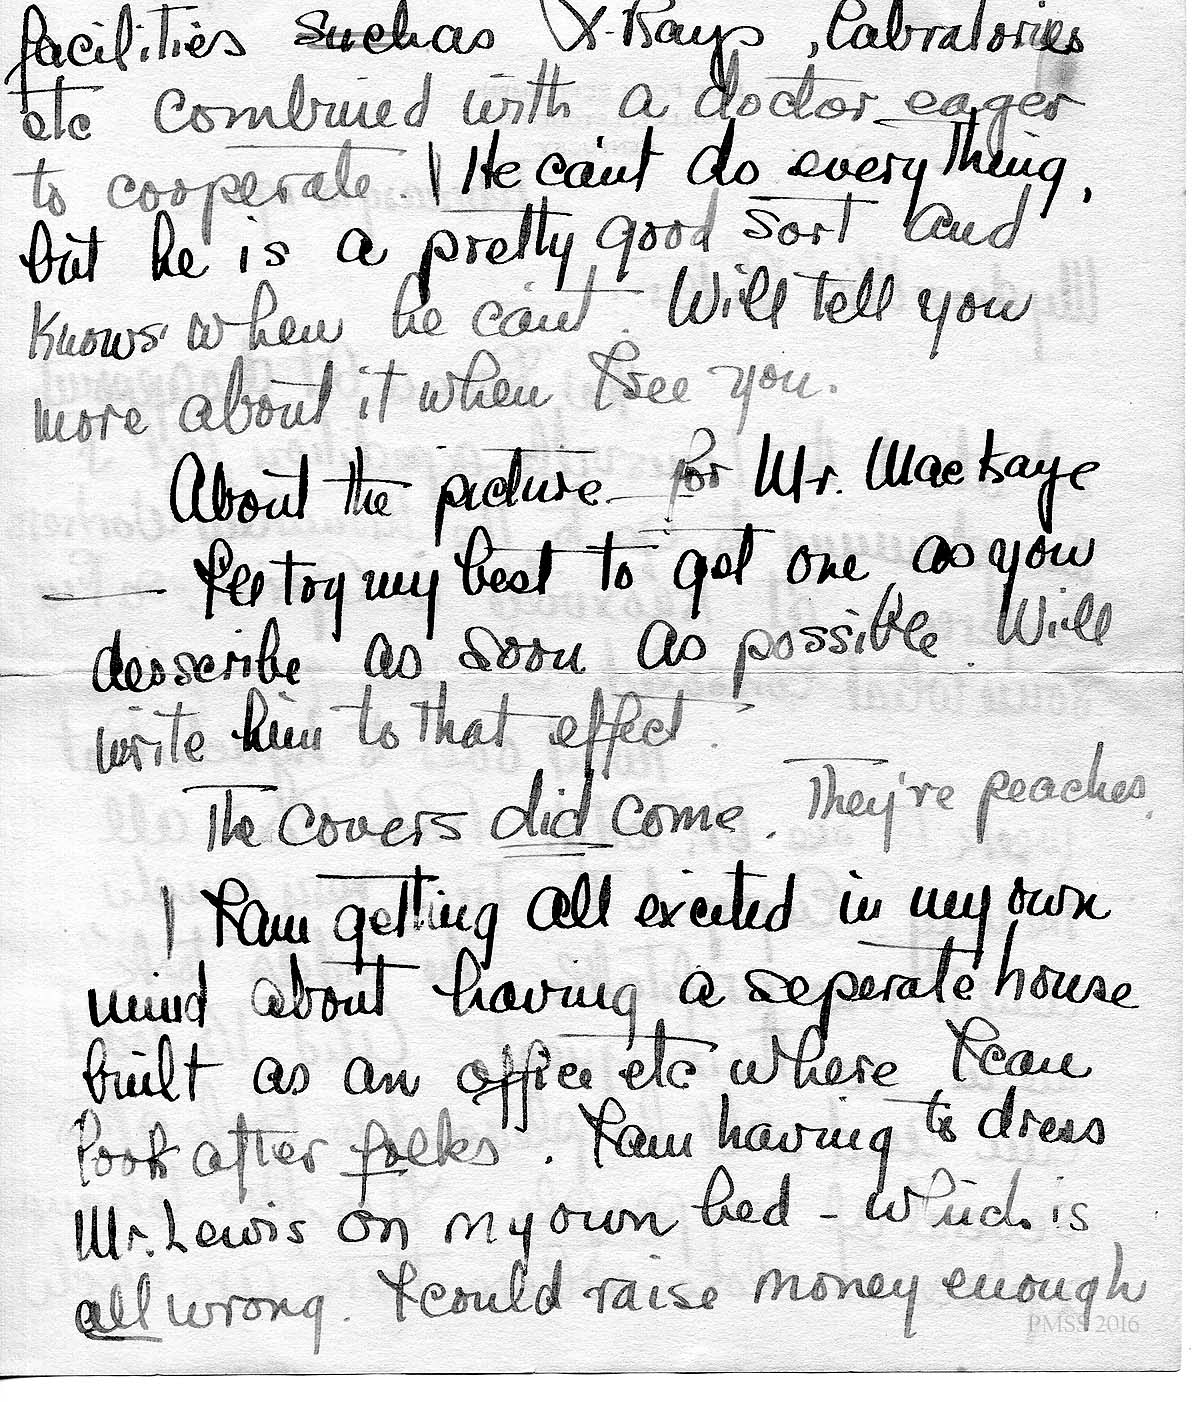 facilities such as X-Rays, Labratories
etc combined with a doctor eager
to cooperate. He can't do everything,
but he is a pretty good sort and
knows when he can't. Will tell you
more about it when I see you.
About the picture for Mr. MacKaye
— I'll try my best to get one as you
desscribe as soon as possible. Will
write him to that effect.
The covers did come. They're peaches.
I am getting all excited in my own
mind about having a seperate house
built as an office etc where I can
look after folks. I am having to dress
Mr. Lewis on my own bed - which is
all wrong. I could raise money enough
PMSS 2016